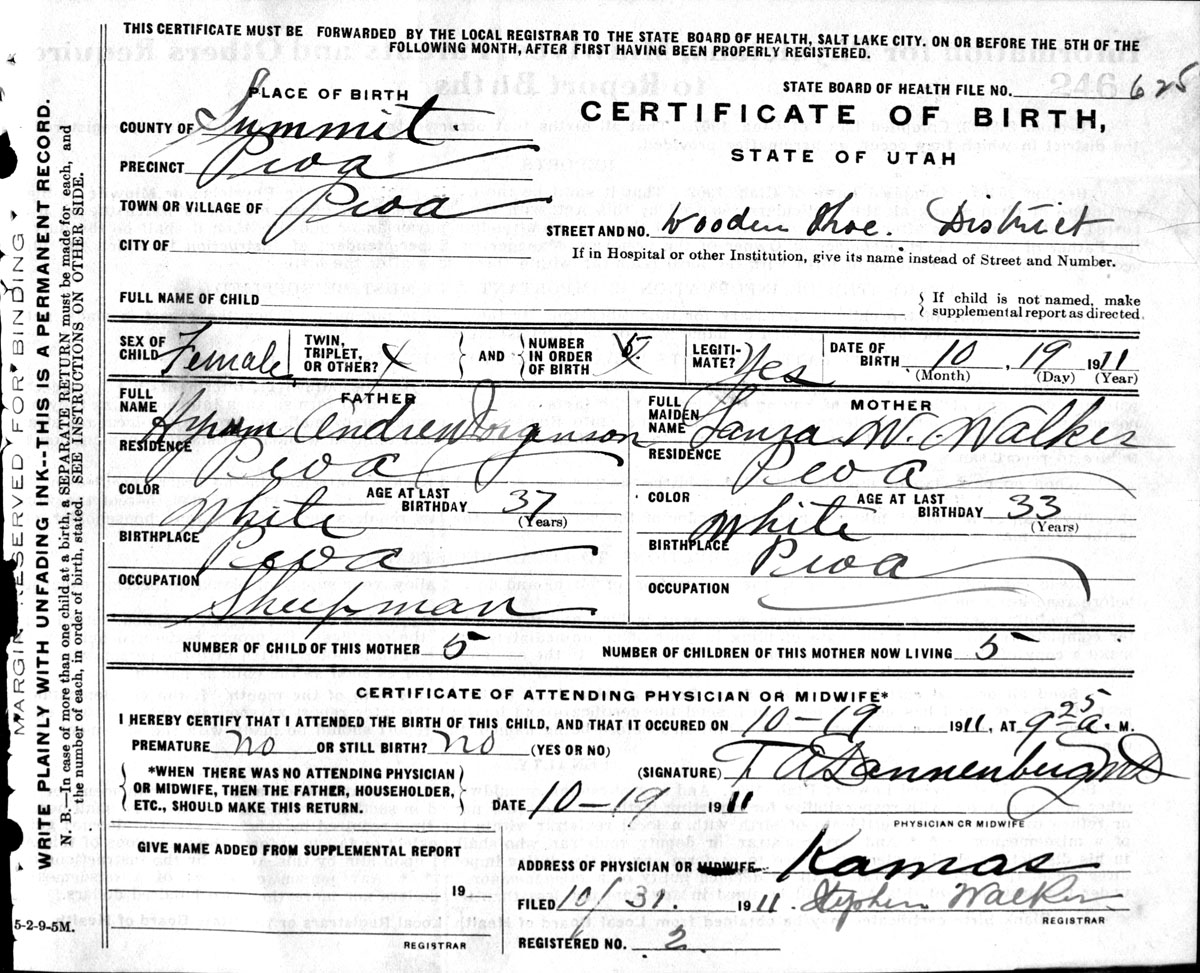 THIS CERTIFICATE MUST BE FORWARDED BY THE LOCAL REGISTRAR TO THE STATE BOARD OF HEALTH, SALT LAKE CITY, ON OR BEFORE THE 5TH OF THE
FOLLOWING MONTH, AFTER FIRST HAVING BEEN PROPERLY REGISTERED.
STATE BOARD OF HEALTH FILE NO. 625
PLACE OF BIRTH
CERTIFICATE OF BIRTH,
STATE OF UTAH
COUNTY OF Summit.
PRECINCT Peoa
TOWN OR VILLAGE OF Peoa
STREET AND NO. Wooden Shoe. District
CITY OF
If in Hospital or other Institution, give its name instead of Street and Number.
FULL NAME OF CHILD
If child is not named, make
supplemental report as directed.
SEX OF CHILD Female
TWIN, TRIPLET, OR OTHER? X
AND
NUMBER IN ORDER OF BIRTH 5
LEGITI- MATE? Yes
DATE OF BIRTH 10, 19 1911
(Month) (Day) (Year)
FATHER
FULL NAME Hyrum Andrew Jorgenson
RESIDENCE Peoa
COLOR White
AGE AT LAST BIRTHDAY 37
(Years)
BIRTHPLACE Peoa
OCCUPATION Sheepman
MOTHER
FULL MAIDEN NAME Laura W. Walker
RESIDENCE Peoa
COLOR White
AGE AT LAST BIRTHDAY 33
(Years)
BIRTHPLACE Peoa
OCCUPATION
NUMBER OF CHILD OF THIS MOTHER 5
NUMBER OF CHILDREN OF THIS MOTHER NOW LIVING 5
CERTIFICATE OF ATTENDING PHYSICIAN OR MIDWIFE*
I HEREBY CERTIFY THAT I ATTENDED THE BIRTH OF THIS CHILD, AND THAT IT OCCURED ON 10-19 1911, AT 9 25 a. M.
PREMATURE no OR STILL BIRTH? no (YES OR NO)
*WHEN THERE WAS NO ATTENDING PHYSICIAN
OR MIDWIFE, THEN THE FATHER, HOUSEHOLDER,
ETC., SHOULD MAKE THIS RETURN.
(SIGNATURE) T A Dannenberg MD
DATE 10-19 1911
PHYSICIAN OR MIDWIFE
GIVE NAME ADDED FROM SUPPLEMENTAL REPORT
19
REGISTRAR
ADDRESS OF PHYSICIAN OR MIDWIFE. Kamas
FILED 10/31 1911. Stephen Walker
REGISTRAR
REGISTERED NO. 2
MARGIN RESERVED FOR BINDING
WRITE PLAINLY WITH UNFADING INK--THIS IS A PERMANENT RECORD.
N. B.—In case of more than one child at a birth, a SEPARATE RETURN must be made for each, and
the number of each, in order of birth, stated. SEE INSTRUCTIONS ON OTHER SIDE.
5-2-9-5M.